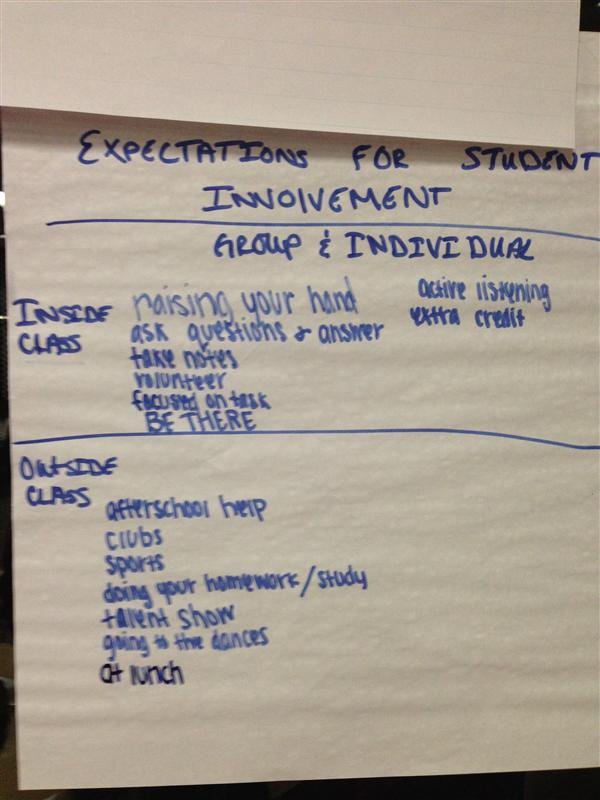 EXPECTATIONS FOR STUDENT
INVOLVEMENT
GROUP & INDIVIDUAL
INSIDE
CLASS
raising your hand
ask questions & answer
take notes
volunteer
focused on task
BE THERE
active listening
extra credit
OUTSIDE
CLASS
afterschool help
clubs
sports
doing your homework/study
talent show
going to the dances
at lunch